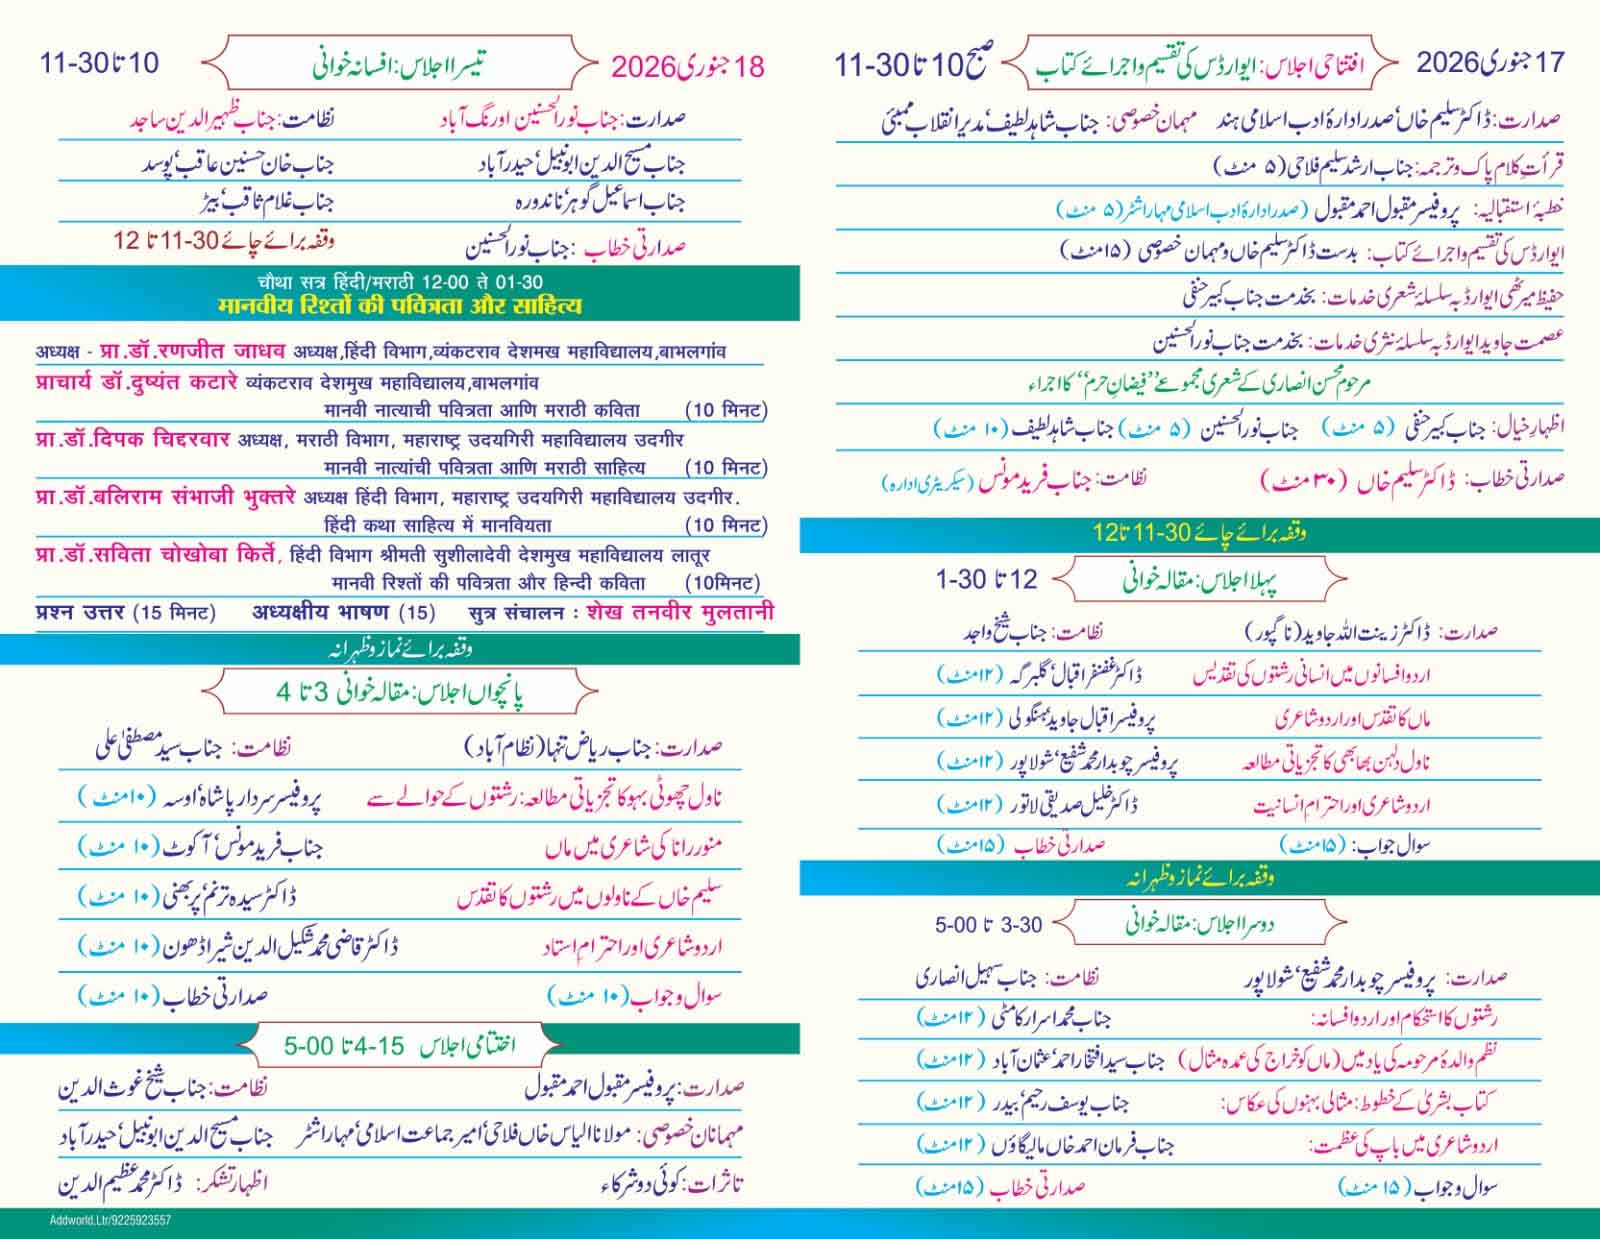 17 جنوری 2026
افتتاحی اجلاس: ایوارڈس کی تقسیم و اجرائے کتاب
صبح 10 تا 30-11
صدارت: ڈاکٹر سلیم خاں، صدر ادارۂ ادب اسلامی ہند مہمان خصوصی: جناب شاہد لطیف، مدیر انقلاب ممبئی
قرأت کلام پاک و ترجمہ: جناب ارشد سلیم فلاحی (۵ منٹ)
خطبۂ استقبالیہ: پروفیسر مقبول احمد مقبول (صدر ادارۂ ادب اسلامی مہاراشٹر) (۵ منٹ)
ایوارڈس کی تقسیم و اجرائے کتاب: بدست ڈاکٹر سلیم خاں و مہمان خصوصی (۱۵ منٹ)
حفیظ میرٹھی ایوارڈ بہ سلسلۂ شعری خدمات: بخدمت جناب کبیر حنفی
عصمت جاوید ایوارڈ بہ سلسلۂ نثری خدمات: بخدمت جناب نور الحسنین
مرحوم محسن انصاری کے شعری مجموعے ’’فیضان حرم‘‘ کا اجراء
اظہار خیال: جناب کبیر حنفی (۵ منٹ) جناب نور الحسنین (۵ منٹ) جناب شاہد لطیف (۱۰ منٹ)
صدارتی خطاب: ڈاکٹر سلیم خاں (۳۰ منٹ) نظامت: جناب فرید مونس (سیکریٹری ادارہ)
وقفہ برائے چائے 30-11 تا 12
پہلا اجلاس: مقالہ خوانی
12 تا 30-1
صدارت: ڈاکٹر زینت اللہ جاوید (ناگپور) نظامت: جناب شیخ واجد
اردو افسانوں میں انسانی رشتوں کی تقدیس ڈاکٹر غضنفر اقبال، گلبرگہ (۱۲ منٹ)
ماں کا تقدس اور اردو شاعری پروفیسر اقبال جاوید، ہنگولی (۱۲ منٹ)
ناول دلہن بھابھی کا تجزیاتی مطالعہ پروفیسر چوبدار محمد شفیع، شولاپور (۱۲ منٹ)
اردو شاعری اور احترام انسانیت ڈاکٹر خلیل صدیقی لاتور (۱۲ منٹ)
سوال جواب: (۱۵ منٹ) صدارتی خطاب (۱۵ منٹ)
وقفہ برائے نماز و ظہرانہ
دوسرا اجلاس: مقالہ خوانی
3-30 تا 5-00
صدارت: پروفیسر چوبدار محمد شفیع، شولاپور نظامت: جناب سہیل انصاری
رشتوں کا استحکام اور اردو افسانہ: جناب محمد اسرار کامٹی (۱۲ منٹ)
نظم والدہ مرحومہ کی یاد میں (ماں کو خراج کی عمدہ مثال) جناب سید افتخار احمد، عثمان آباد (۱۲ منٹ)
کتاب بشریٰ کے خطوط: مثالی بہنوں کی عکاس: جناب یوسف رحیم، بیدر (۱۲ منٹ)
اردو شاعری میں باپ کی عظمت: جناب فرمان احمد خاں مالیگاؤں (۱۲ منٹ)
سوال و جواب (۱۵ منٹ) صدارتی خطاب (۱۵ منٹ)
18 جنوری 2026
تیسرا اجلاس: افسانہ خوانی
10 تا 30-11
صدارت: جناب نور الحسنین اورنگ آباد نظامت: جناب ظہیر الدین ساجد
جناب مسیح الدین ابو نبیل، حیدرآباد جناب خان حسنین عاقب، پوسد
جناب اسماعیل گوہر، ناندورہ جناب غلام ثاقب، بیڑ
صدارتی خطاب: جناب نور الحسنین وقفہ برائے چائے 30-11 تا 12
चौथा सत्र हिंदी/मराठी 12-00 ते 01-30
मानवीय रिश्तों की पवित्रता और साहित्य
अध्यक्ष - प्रा.डॉ.रणजीत जाधव अध्यक्ष,हिंदी विभाग,व्यंकटराव देशमख महाविद्यालय,बाभलगांव
प्राचार्य डॉ.दुष्यंत कटारे व्यंकटराव देशमुख महाविद्यालय,बाभलगांव
मानवी नात्याची पवित्रता आणि मराठी कविता (10 मिनट)
प्रा.डॉ.दिपक चिद्दरवार अध्यक्ष, मराठी विभाग, महाराष्ट्र उदयगिरी महाविद्यालय उदगीर
मानवी नात्यांची पवित्रता आणि मराठी साहित्य (10 मिनट)
प्रा.डॉ.बलिराम संभाजी भुक्तरे अध्यक्ष हिंदी विभाग, महाराष्ट्र उदयगिरी महाविद्यालय उदगीर.
हिंदी कथा साहित्य में मानवियता (10 मिनट)
प्रा.डॉ.सविता चोखोबा किर्ते, हिंदी विभाग श्रीमती सुशीलादेवी देशमुख महाविद्यालय लातूर
मानवी रिश्तों की पवित्रता और हिन्दी कविता (10मिनट)
प्रश्न उत्तर (15 मिनट) अध्यक्षीय भाषण (15) सुत्र संचालन : शेख तनवीर मुलतानी
وقفہ برائے نماز و ظہرانہ
پانچواں اجلاس: مقالہ خوانی 3 تا 4
صدارت: جناب ریاض تنہا (نظام آباد) نظامت: جناب سید مصطفیٰ علی
ناول چھوٹی بہو کا تجزیاتی مطالعہ: رشتوں کے حوالے سے پروفیسر سردار پاشاہ، اوسہ (۱۰ منٹ)
منور رانا کی شاعری میں ماں جناب فرید مونس، آکوٹ (۱۰ منٹ)
سلیم خاں کے ناولوں میں رشتوں کا تقدس ڈاکٹر سیدہ ترنم، پربھنی (۱۰ منٹ)
اردو شاعری اور احترام استاد ڈاکٹر قاضی محمد شکیل الدین شیراڈھون (۱۰ منٹ)
سوال و جواب (۱۰ منٹ) صدارتی خطاب (۱۰ منٹ)
اختتامی اجلاس 15-4 تا 00-5
صدارت: پروفیسر مقبول احمد مقبول نظامت: جناب شیخ غوث الدین
مہمانان خصوصی: مولانا الیاس خاں فلاحی، امیر جماعت اسلامی، مہاراشٹر جناب مسیح الدین ابو نبیل، حیدرآباد
تاثرات: کوئی دو شرکاء اظہار تشکر: ڈاکٹر محمد عظیم الدین
Addworld.Ltr/9225923557